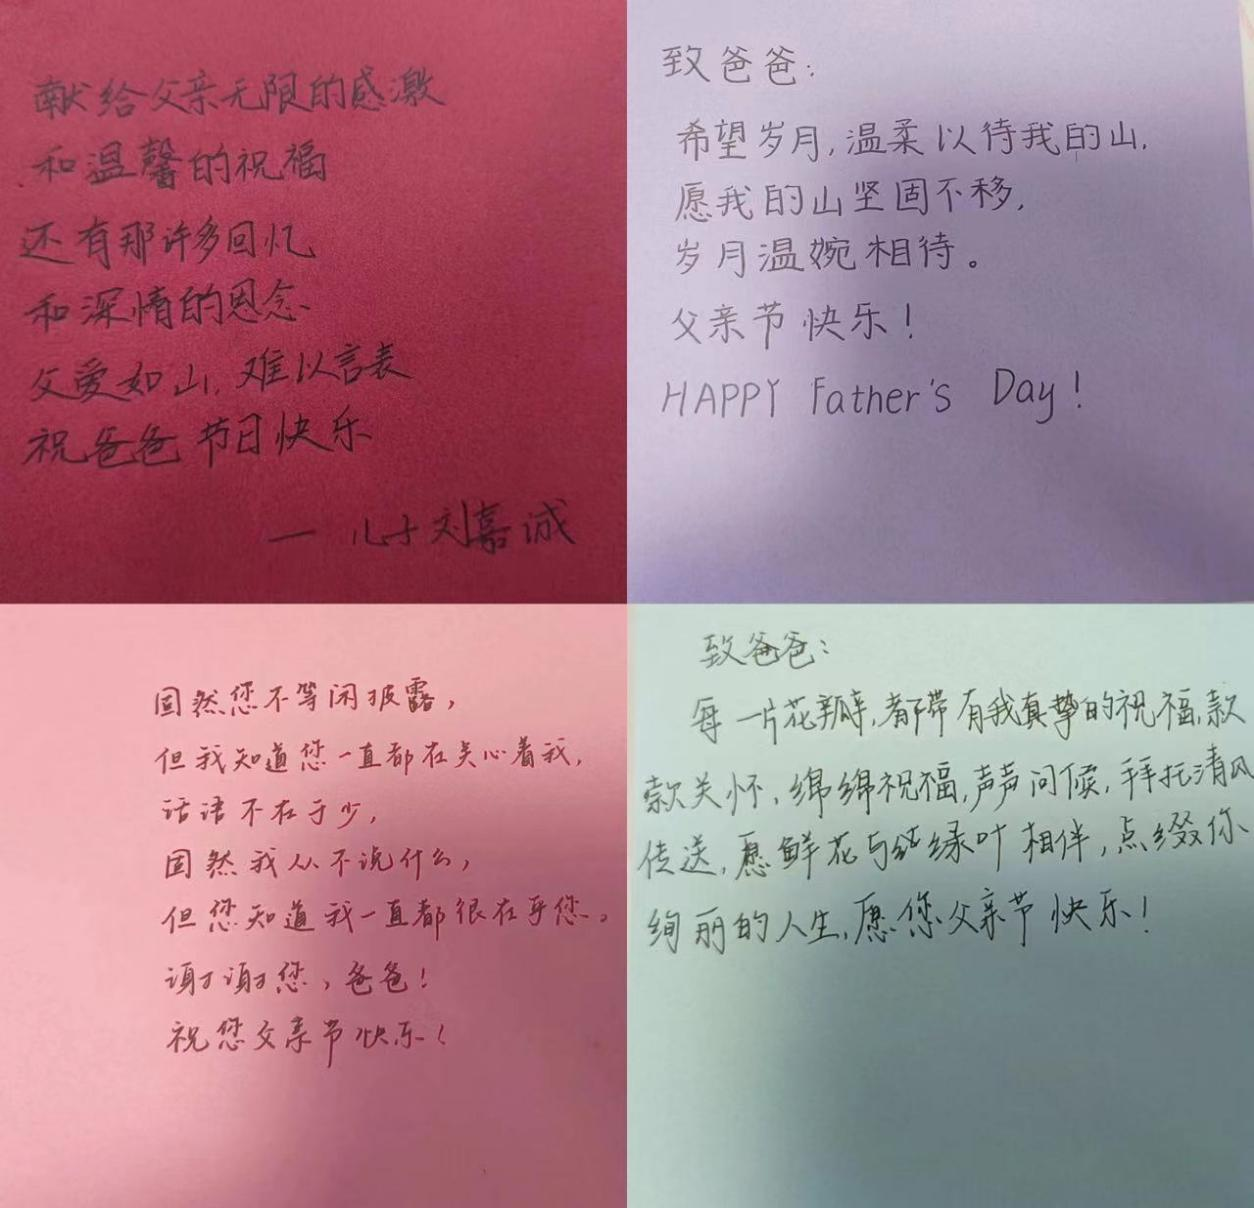 献给父亲无限的感激
和温馨的祝福
还有那许多回忆
和深情的恩念
父爱如山,难以言表
祝爸爸节日快乐
— 儿子刘嘉诚
致爸爸:
希望岁月,温柔以待我的山,
愿我的山坚固不移,
岁月温婉相待。
父亲节快乐!
HAPPY Father's Day!
固然您不等闲披露,
但我知道您一直都在关心着我,
话语不在于少,
固然我从不说什么,
但您知道我一直都很在乎您。
谢谢您,爸爸!
祝您父亲节快乐!
致爸爸:
每一片花瓣,都带有我真挚的祝福,款
款关怀,绵绵祝福,声声问候,拜托清风
传送,愿鲜花与绿叶相伴,点缀你
绚丽的人生,愿您父亲节快乐!